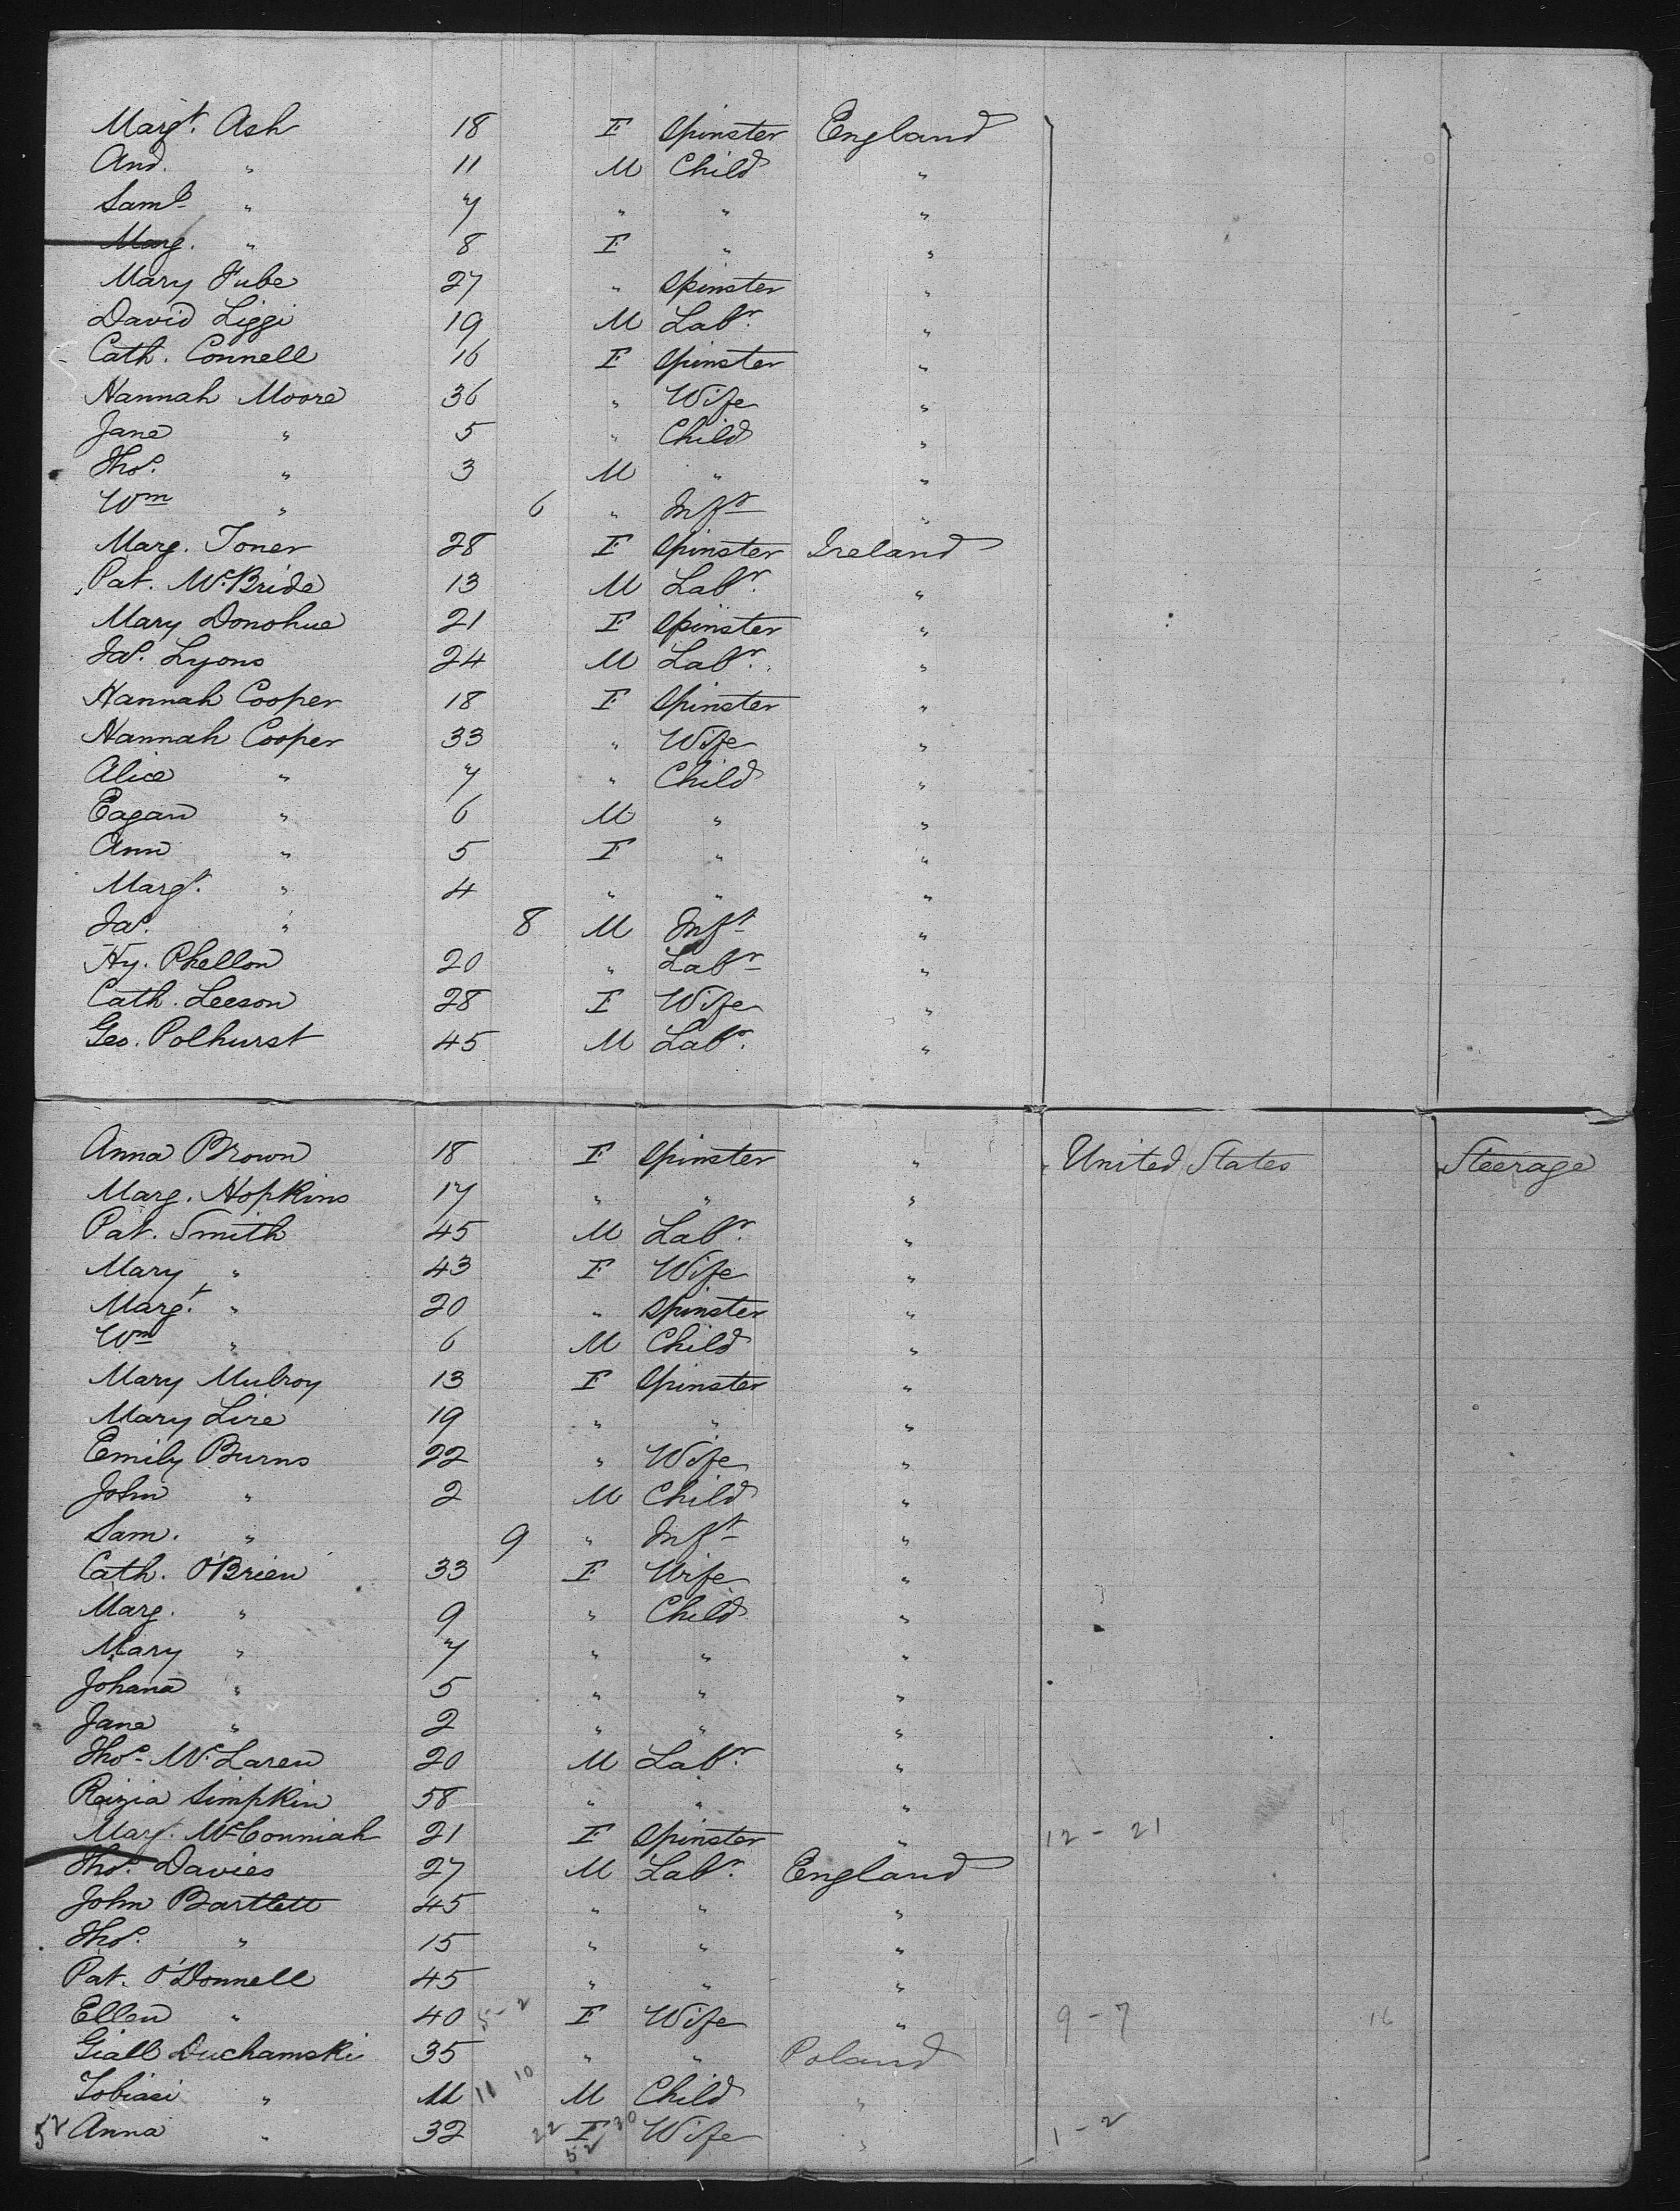 Margt. Ash 18 F Spinster England
And. " 11 M Child "
Saml " 7 " " "
Marg. " 8 F " "
Mary Fube 27 " Spinster "
David Liggi 19 M Labr. "
Cath. Connell 16 F Spinster "
Hannah Moore 36 " Wife "
Jane " 5 " Child "
Thos. " 3 M " "
Wm " 6 " Inft "
Marg. Toner 28 F Spinster Ireland
Pat. McBride 13 M Labr. "
Mary Donohue 21 F Spinster "
Jas. Lyons 24 M Labr. "
Hannah Cooper 18 F Spinster "
Hannah Cooper 33 " Wife "
Alice " 7 " Child "
Eagan " 6 M " "
Ann " 5 F " "
Margt. " 4 " " "
Jas. " 8 M Inft "
Hy. Phellon 20 " Labr "
Cath. Leeson 28 F Wife "
Geo. Polhurst 45 M Labr. "
Anna Brown 18 F Spinster " United States Steerage
Marg. Hopkins 17 " " "
Pat. Smith 45 M Labr. "
Mary " 43 F Wife "
Margt. " 20 " Spinster "
Wm " 6 M Child "
Mary Mulroy 13 F Spinster "
Mary Lire 19 " " "
Emily Burns 22 " Wife "
John " 2 M Child "
Sam. " 9 " Inft "
Cath. O'Brien 33 F Wife "
Marg. " 9 " Child "
Mary " 7 " " "
Johana " 5 " " "
Jane " 2 " " "
Thos. McLaren 20 M Labr. "
Raizia Simpkin 58 " " "
Marg. McConniah 21 F Spinster " 12 - 21
Thos. Davies 27 M Labr. England
John Bartlett 45 " " "
Thos. " 15 " " "
Pat. O'Donnell 45 " " "
Ellen " 40 5-2 F Wife " 9 - 7 16
Giall Duchamski 35 " " Poland
Tobiasi " 11 11 10 M Child "
52 Anna " 32 22 F 30 Wife " 1 - 2
52